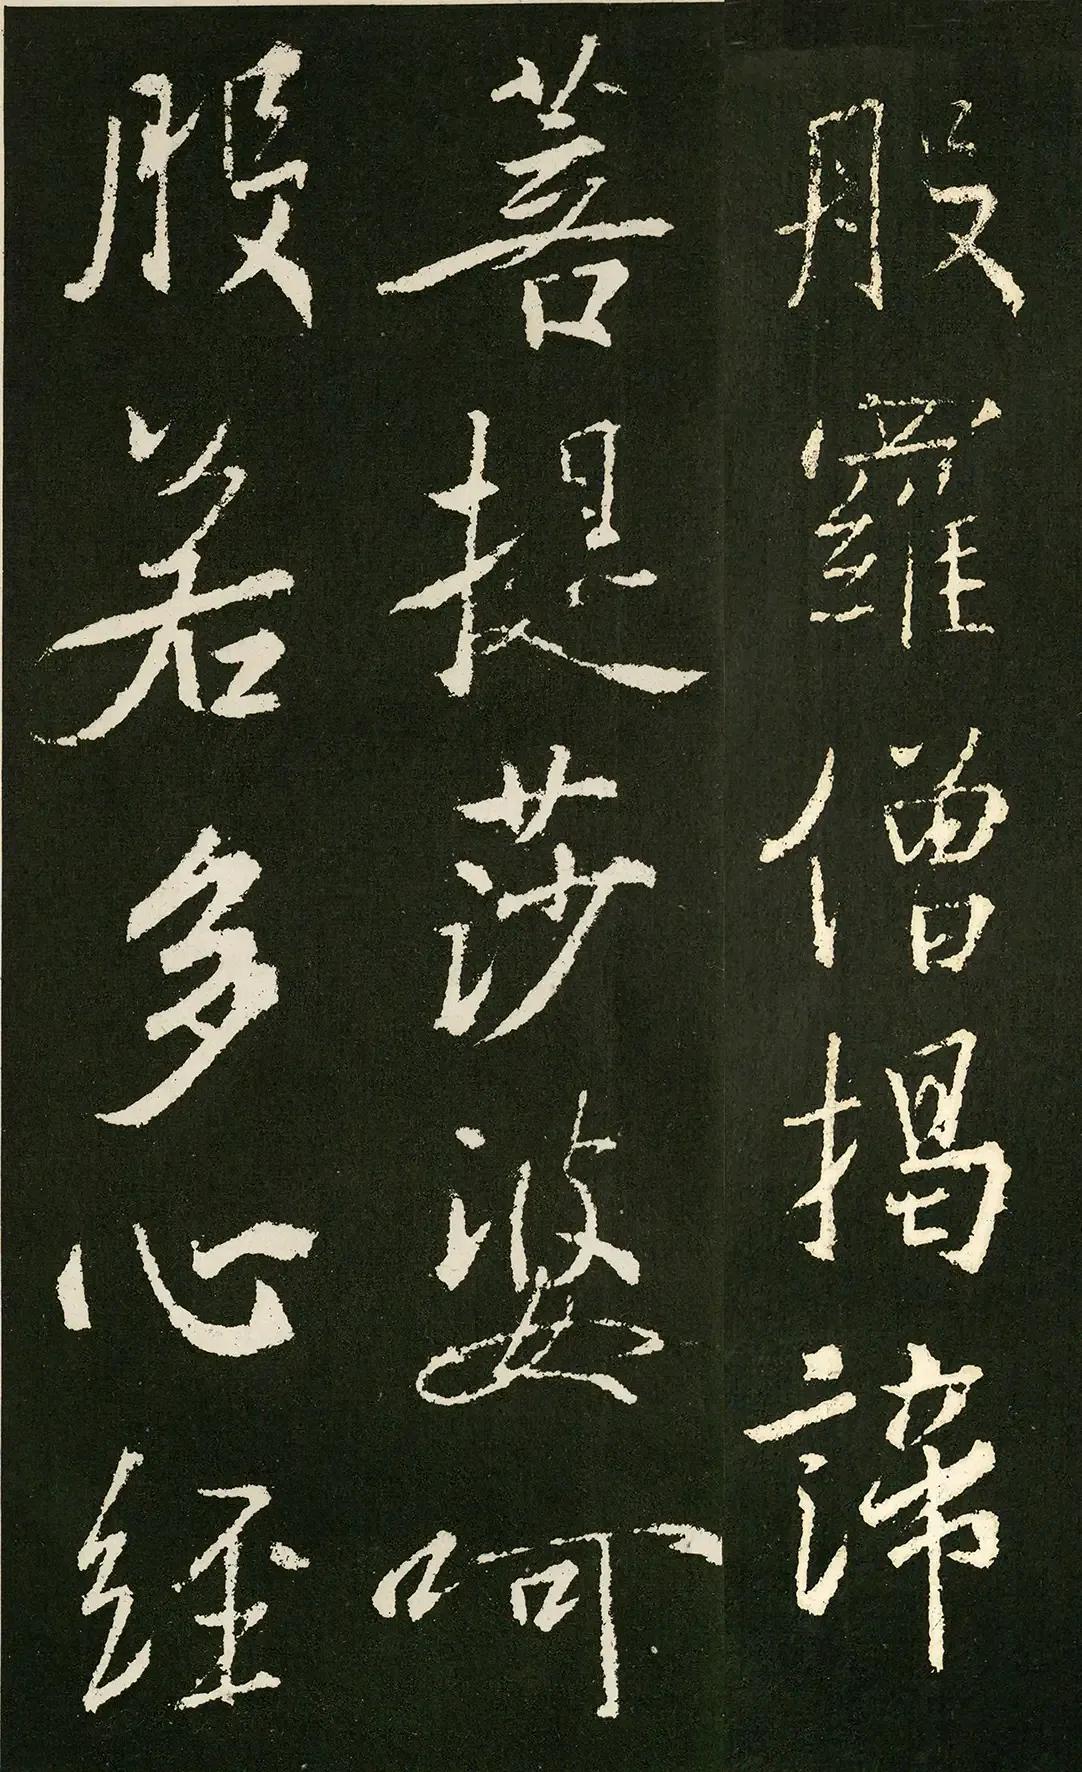 般羅僧揭諦
菩提莎婆呵
般若多心經